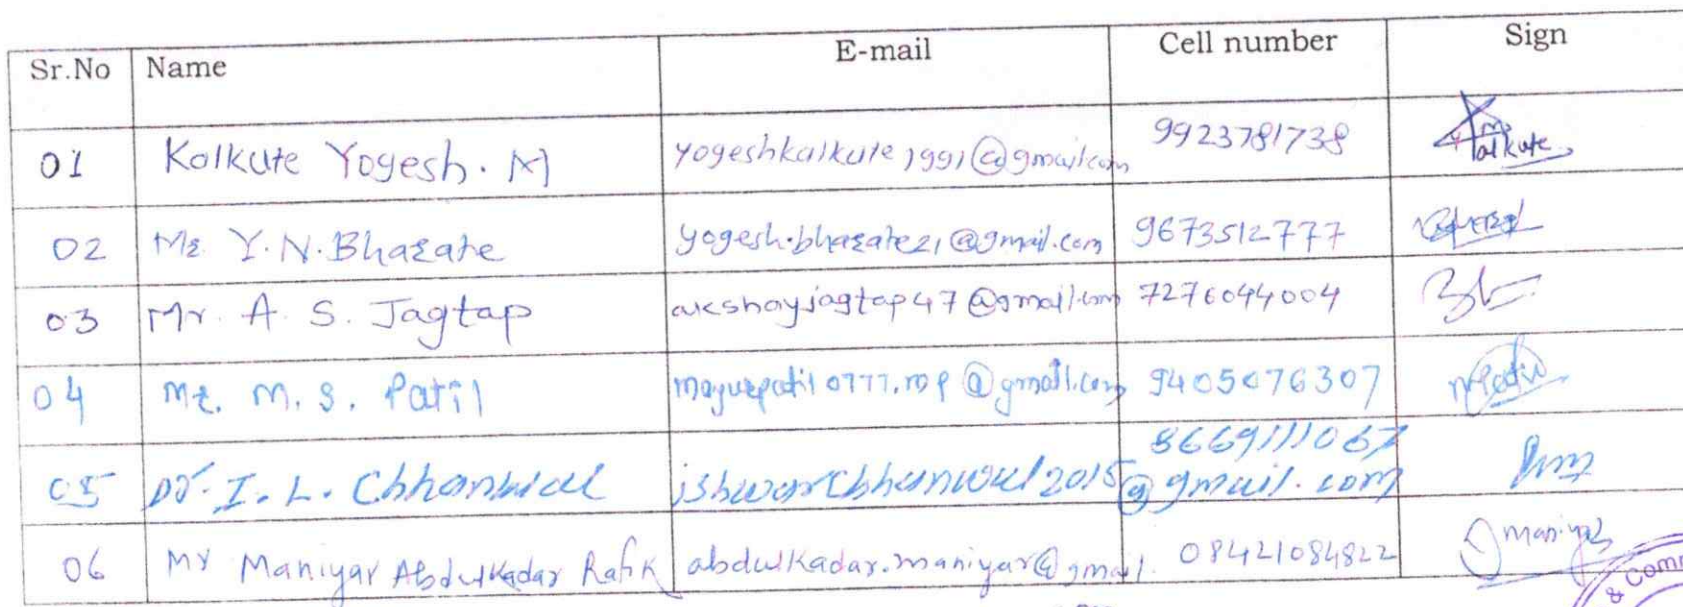 Sr.No Name E-mail Cell number Sign
01 Kalkute Yogesh. M yogeshkalkute1991@gmail.com 9923781738 Y m. alkute
02 Mr. Y.N.Bharate yogesh.bharate21@gmail.com 9673512777
03 Mr. A. S. Jagtap akshayjagtap47@gmail.com 7276044004
04 Mr. M. S. Patil mayurpatil0777.mp@gmail.com 9405076307 MPatil
05 Dr. I. L. Chhanwal ishwarchhanwal2015@gmail.com 8669111067
06 Mr Maniyar Abdulkadar Rafik abdulkadar.maniyar@gmail. 08421084822 maniyar
& Comm